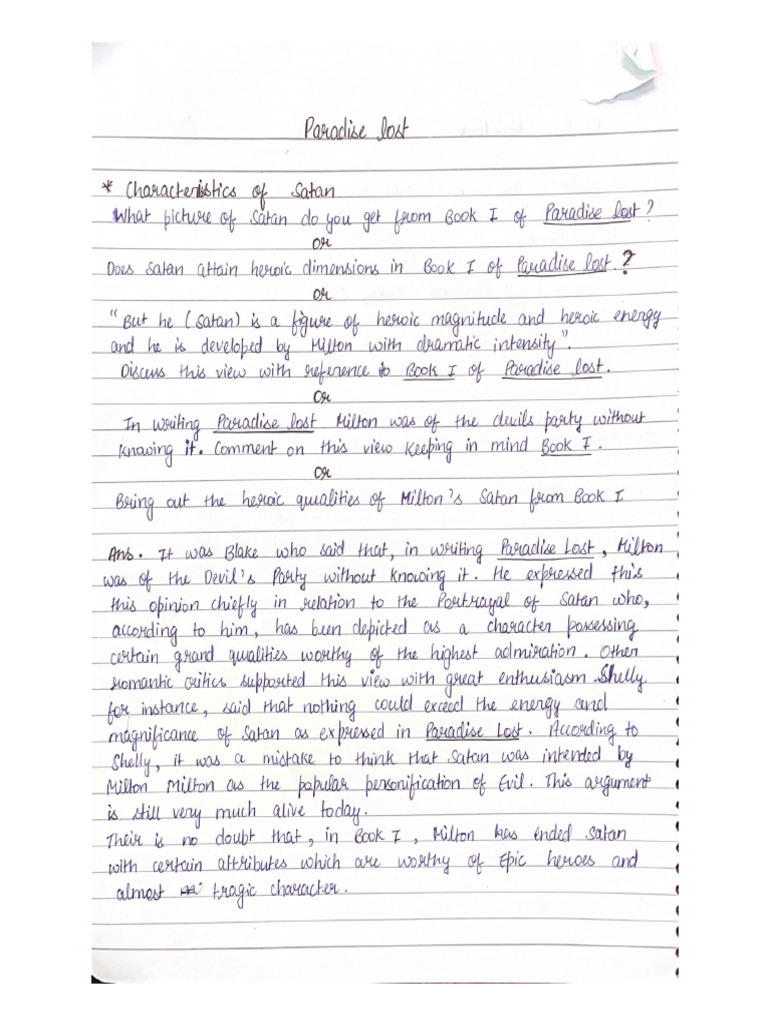 Paradise lost
* Characteristics of Satan
What picture of Satan do you get from Book I of Paradise lost?
or
Does Satan attain heroic dimensions in Book I of Paradise lost.?
or
"But he (Satan) is a figure of heroic magnitude and heroic energy
and he is developed by Milton with dramatic intensity".
Discuss this view with reference to Book I of Paradise lost.
or
In writing Paradise lost Milton was of the devils party without
knowing it. Comment on this view keeping in mind Book I.
or
Bring out the heroic qualities of Milton's Satan from Book I
Ans. It was Blake who said that, in writing Paradise Lost, Milton
was of the Devil's Party without knowing it. He expressed this
this opinion chiefly in relation to the Portrayal of Satan who,
according to him, has been depicted as a character possessing
certain grand qualities worthy of the highest admiration. Other
romantic critics supported this view with great enthusiasm. Shelly
for instance, said that nothing could exceed the energy and
magnificance of Satan as expressed in Paradise Lost. According to
Shelly, it was a mistake to think that Satan was intended by
Milton Milton as the popular personification of Evil. This argument
is still very much alive today.
Their is no doubt that, in Book I, Milton has ended Satan
with certain attributes which are worthy of Epic heroes and
almost tragic character.